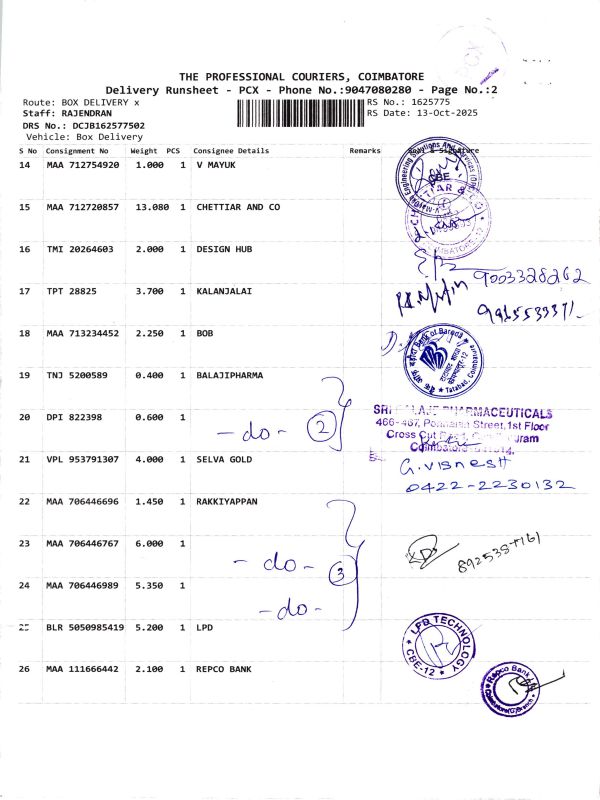 PCX
THE PROFESSIONAL COURIERS, COIMBATORE
Delivery Runsheet - PCX - Phone No.:9047080280 - Page No.:2
Route: BOX DELIVERY x RS No.: 1625775
Staff: RAJENDRAN RS Date: 13-Oct-2025
DRS No.: DCJB162577502
Vehicle: Box Delivery
S No Consignment No Weight PCS Consignee Details Remarks Signature
14 MAA 712754920 1.000 1 V MAYUK
Engineering Solutions And Services
CBE
15 MAA 712720857 13.080 1 CHETTIAR AND CO
COIMBATORE-12
16 TMI 20264603 2.000 1 DESIGN HUB
9003328262
17 TPT 28825 3.700 1 KALANJALAI
18 MAA 713234452 2.250 1 BOB
Bank of Baroda
Tatabad, Coimbatore
19 TNJ 5200589 0.400 1 BALAJIPHARMA
20 DPI 822398 0.600 1
-do- 2
SRI BALAJI PHARMACEUTICALS
466-467, Street, 1st Floor
Cross Cut Road,
Coimbatore
21 VPL 953791307 4.000 1 SELVA GOLD
G.VISNESH
0422-2230132
22 MAA 706446696 1.450 1 RAKKIYAPPAN
23 MAA 706446767 6.000 1
-do- 3
24 MAA 706446989 5.350 1
-do-
25 BLR 5050985419 5.200 1 LPD
LPD TECHNOLOGY
CBE-12
26 MAA 111666442 2.100 1 REPCO BANK
Repco Bank